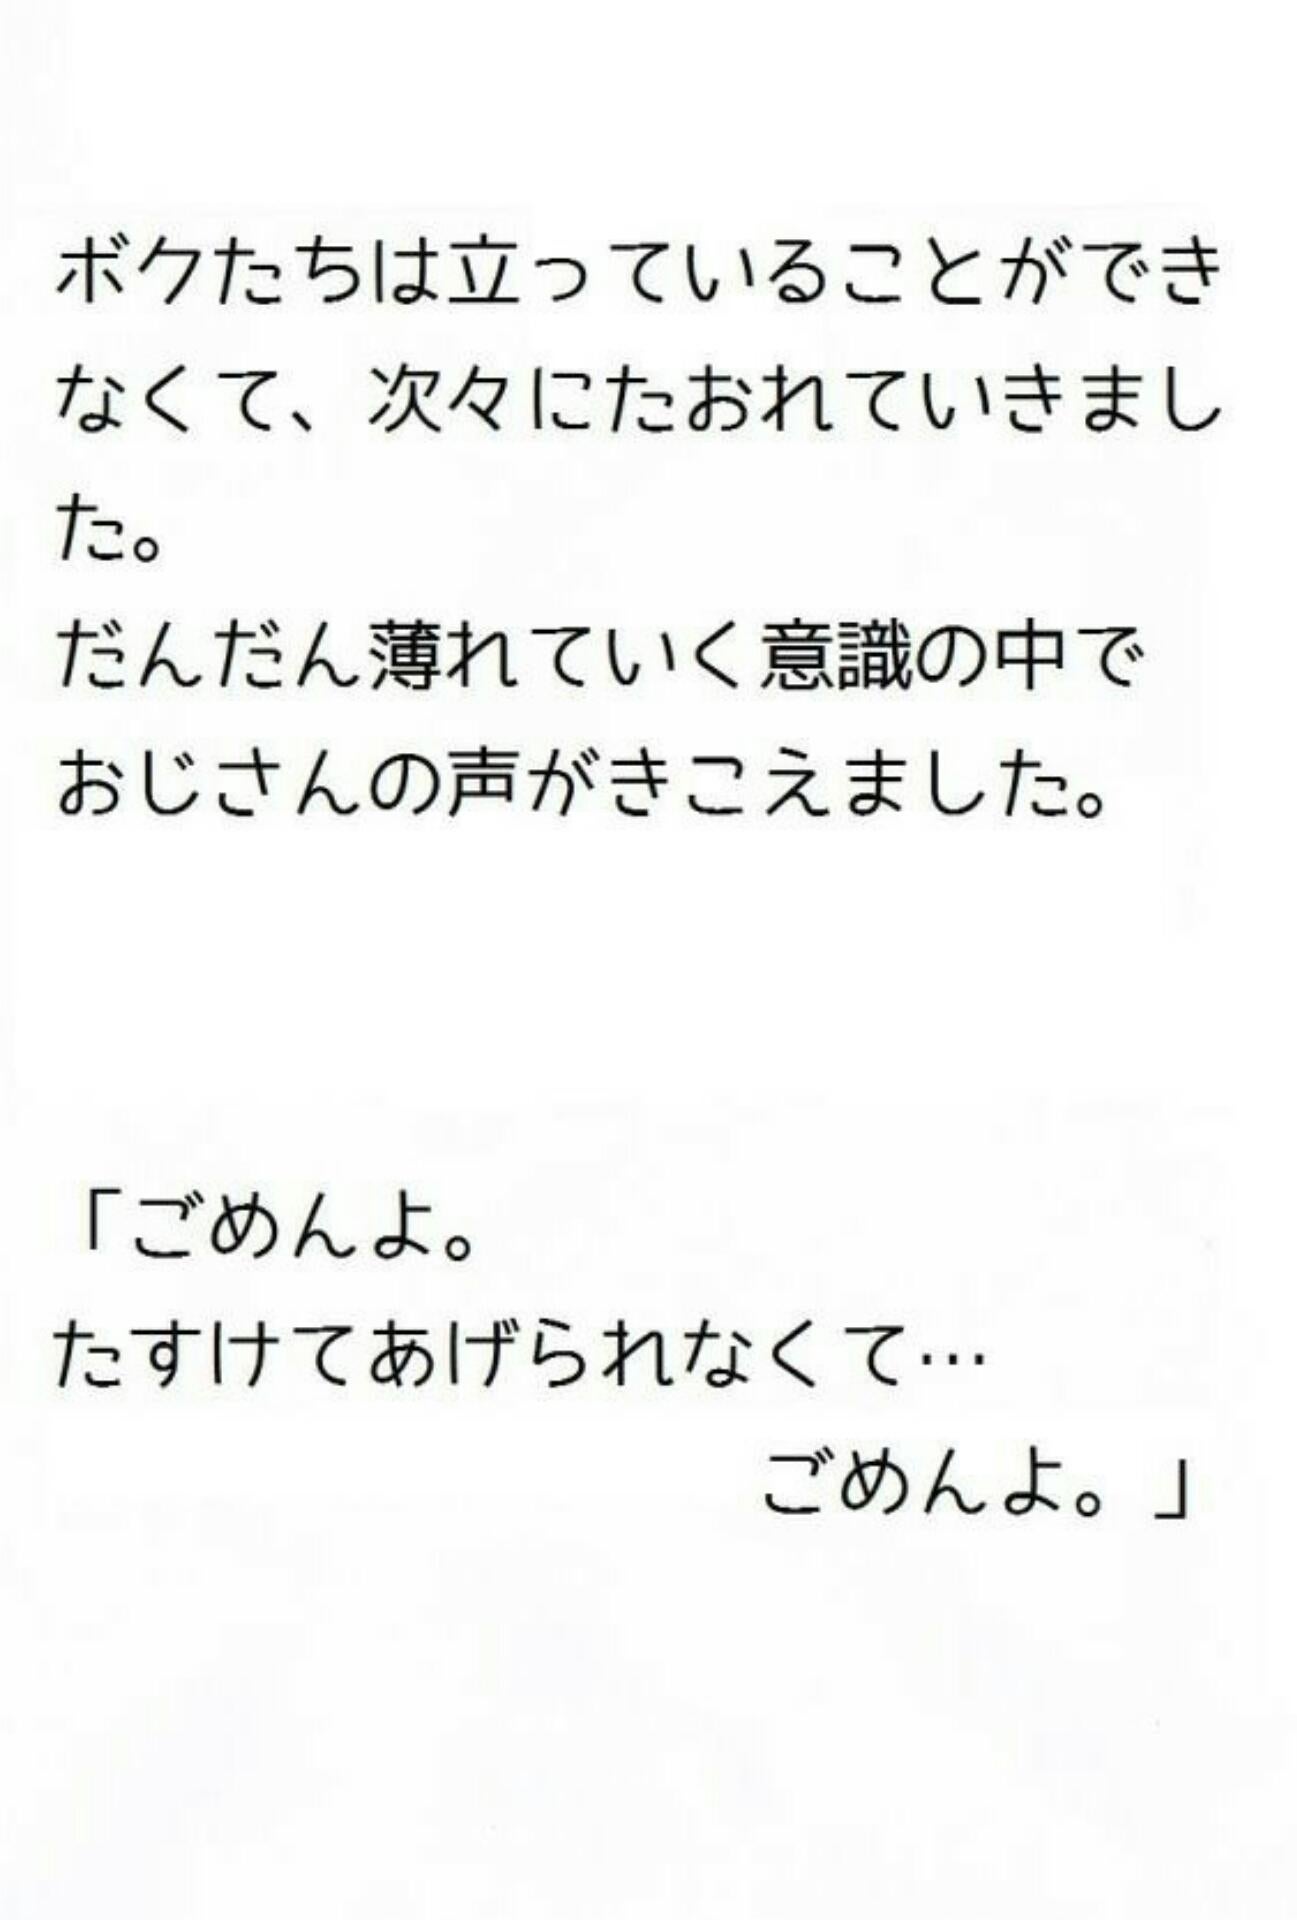 ボクたちは立っていることができ
なくて、次々にたおれていきまし
た。
だんだん薄れていく意識の中で
おじさんの声がきこえました。
「ごめんよ。
たすけてあげられなくて…
ごめんよ。」